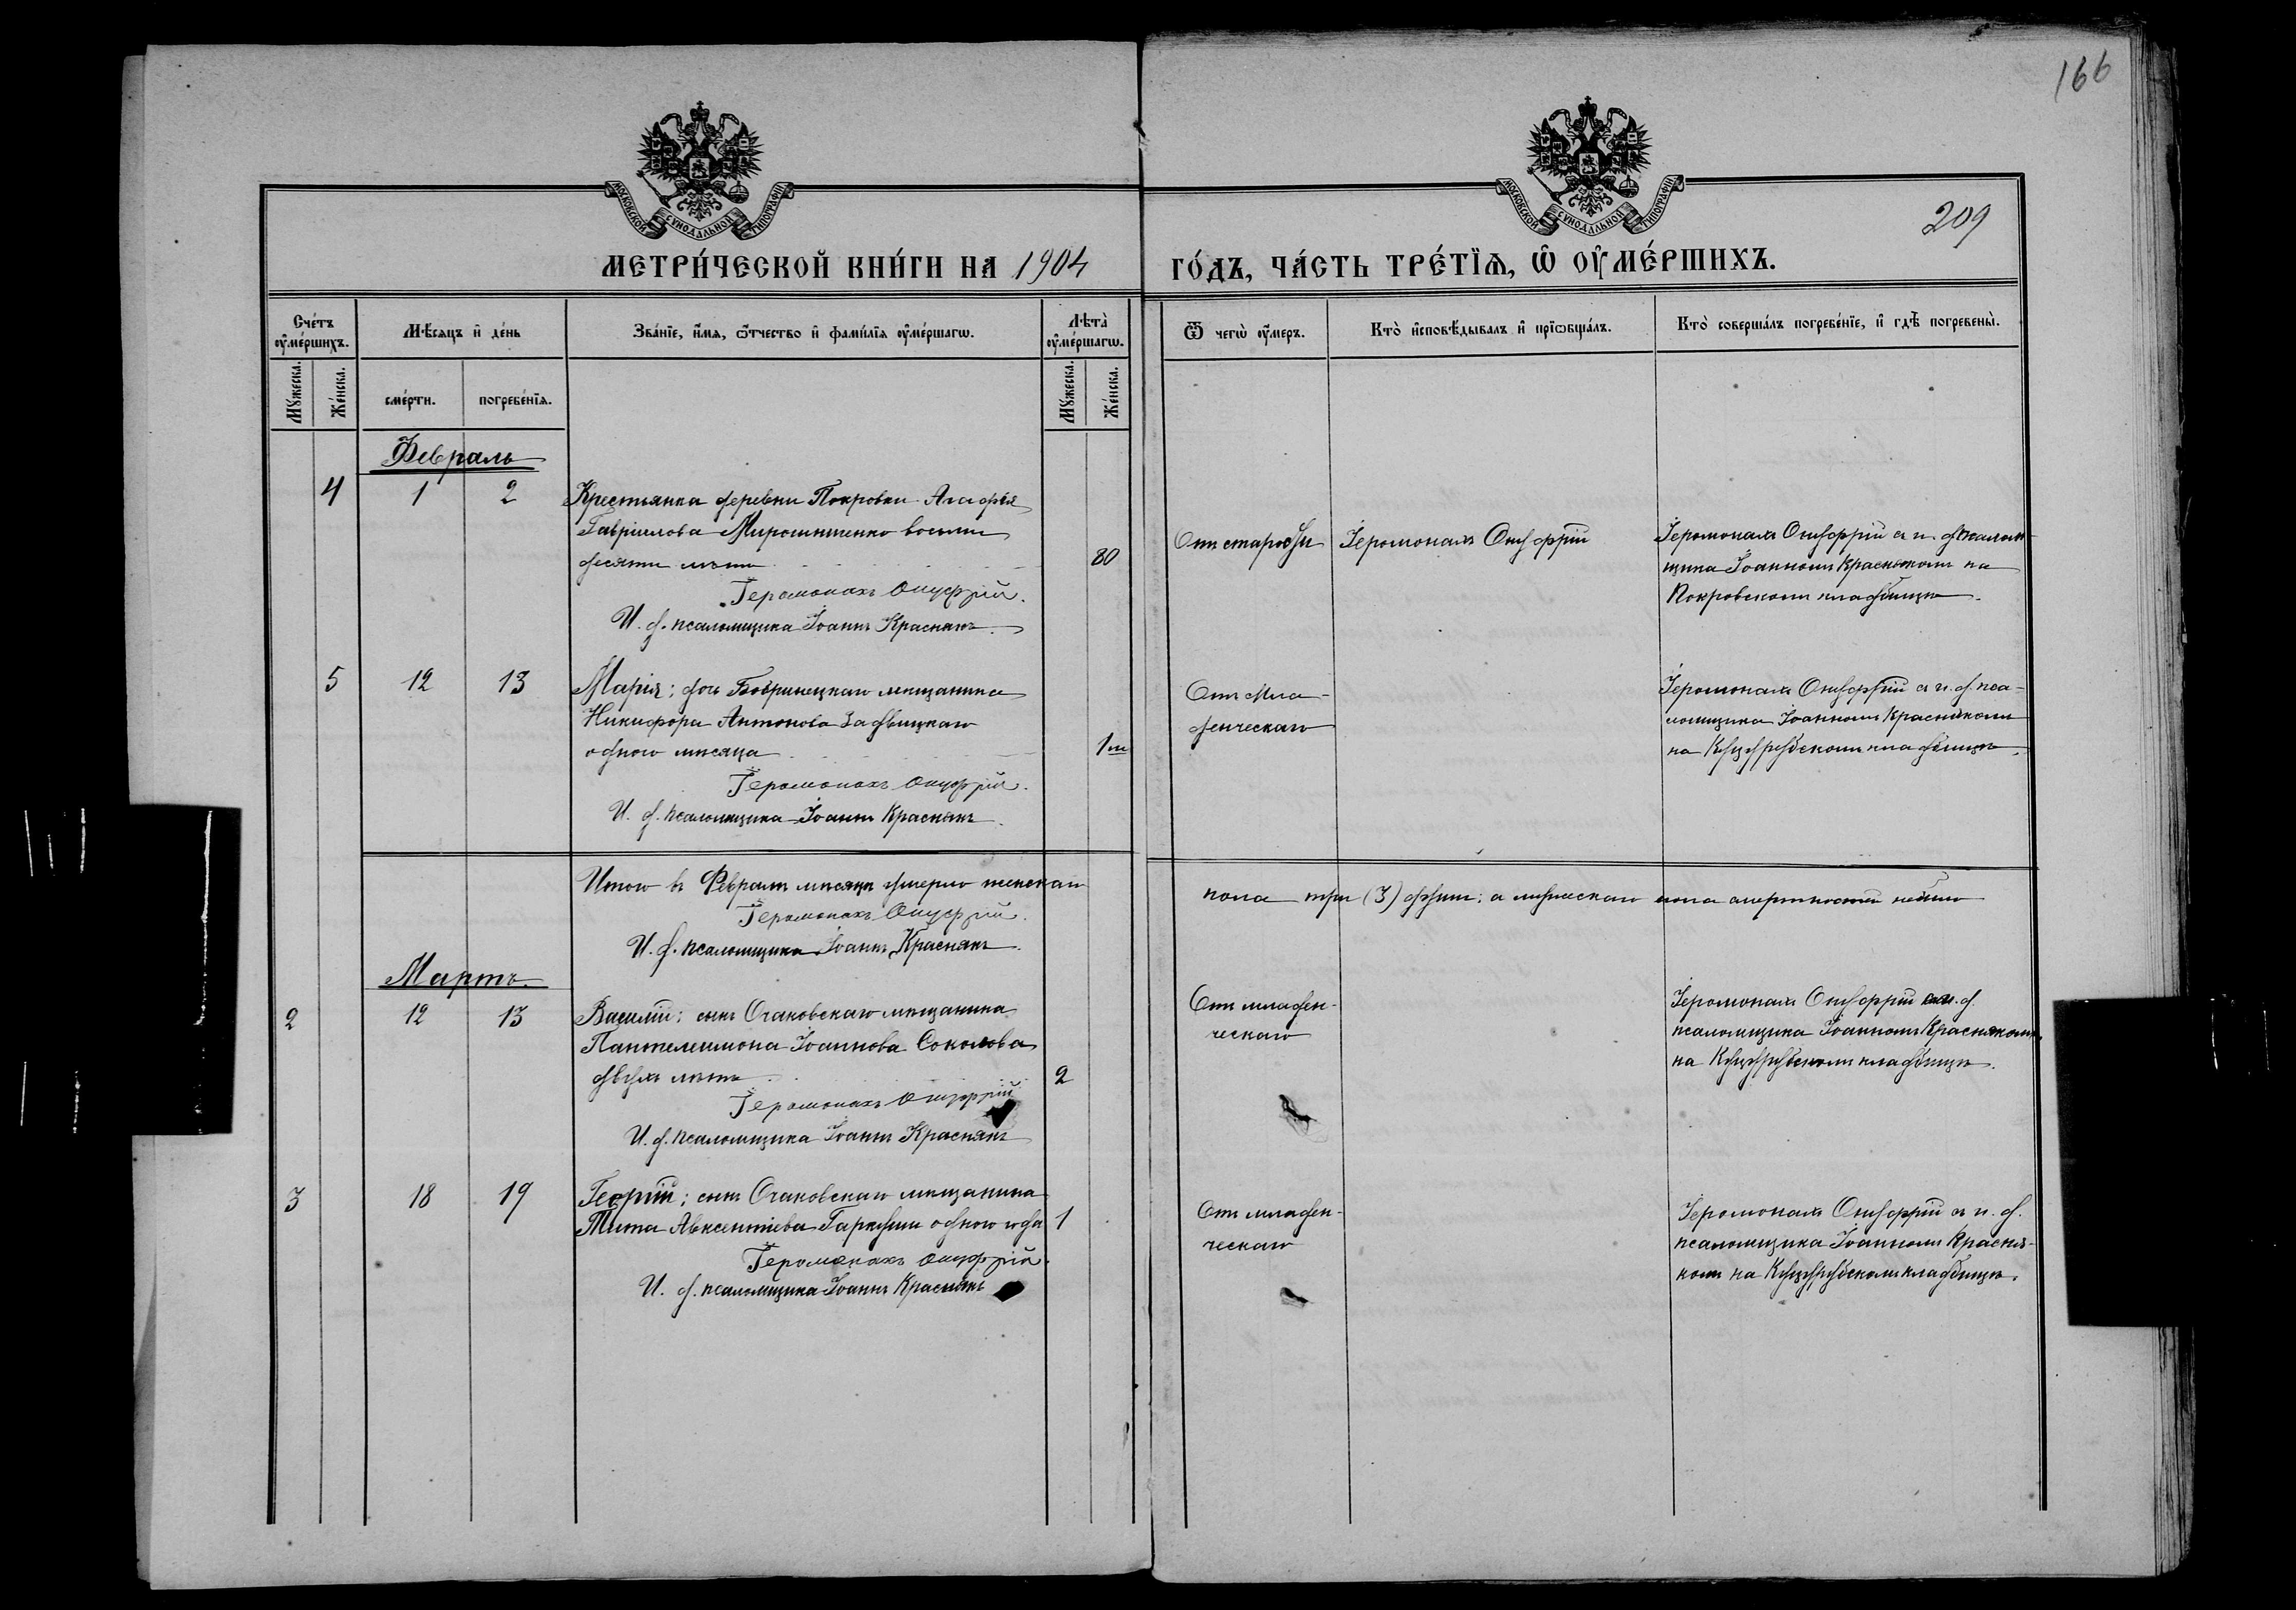 166
209
МОСКОВСКОЙ СѴНОДАЛЬНОЙ ТИПОГРАФІИ
МОСКОВСКОЙ СѴНОДАЛЬНОЙ ТИПОГРАФІИ
МЕТРИ́ЧЕСКОЙ КНИ́ГИ НА 1904 ГО́ДЪ, ЧА́СТЬ ТРЕ́ТЇѦ, Ѡ҆ ОУ҆МЕ́РШИХЪ.
Сче́тъ оу҆ме́ршихъ.
Мꙋ́жеска.
Же́нска.
Мѣ́сяцъ и҆ де́нь
сме́рти.
погребе́нїѧ.
Зва́нїе, и҆́мѧ, ѻ҆́тчество и҆ фами́лїѧ оу҆ме́ршагѡ.
Лѣ́та̀ оу҆ме́ршагѡ.
Мꙋ́жеска.
Же́нска.
Ѿ чегѡ̀ оу҆́меръ.
Кто̀ и҆сповѣ́дывалъ и҆ прїѡбща́лъ.
Кто̀ соверша́лъ погребе́нїе, и҆ гдѣ̀ погребены̀.
Февраль
4 1 2 Крестьянка деревни Покровки Агафія
Гавріилова Мирошниченко восьми
десяти лѣтъ 80
Іеромонахъ Онуфрій.
И. д. псаломщика Іоаннъ Краснякъ.
Отъ старости
Іеромонахъ Онуфрій
Іеромонахъ Онуфрій съ и. д. псалом-
щика Іоанномъ Краснякомъ на
Покровскомъ кладбищѣ.
5 12 13 Марія; дочь Бобринецкаго мѣщанина
Никифора Антонова Задвицкаго
одного мѣсяца 1 м
Іеромонахъ Онуфрій.
И. д. псаломщика Іоаннъ Краснякъ.
Отъ мла-
денческаго
Іеромонахъ Онуфрій съ и. д. пса-
ломщика Іоанномъ Краснякомъ
на Куцурубскомъ кладбищѣ.
Итого въ Февралѣ мѣсяцѣ умерло женскаго пола три (3) души; а мужескаго пола смертностей небыло
Іеромонахъ Онуфрій.
И. д. псаломщика Іоаннъ Краснякъ.
Мартъ.
2 12 13 Василій; сынъ Очаковскаго мѣщанина
Пантелеимона Іоаннова Соколова
двухъ лѣтъ 2
Іеромонахъ Онуфрій
И. д. псаломщика Іоаннъ Краснякъ
Отъ младен-
ческаго
Іеромонахъ Онуфрій съ и. д.
псаломщика Іоанномъ Краснякомъ
на Куцурубскомъ кладбищѣ.
3 18 19 Георгій; сынъ Очаковскаго мѣщанина
Тита Авксентіева Гаркуши одного года 1
Іеромонахъ Онуфрій.
И. д. псаломщика Іоаннъ Краснякъ
Отъ младен-
ческаго
Іеромонахъ Онуфрій съ и. д.
псаломщика Іоанномъ Красня-
комъ на Куцурубскомъ кладбищѣ.